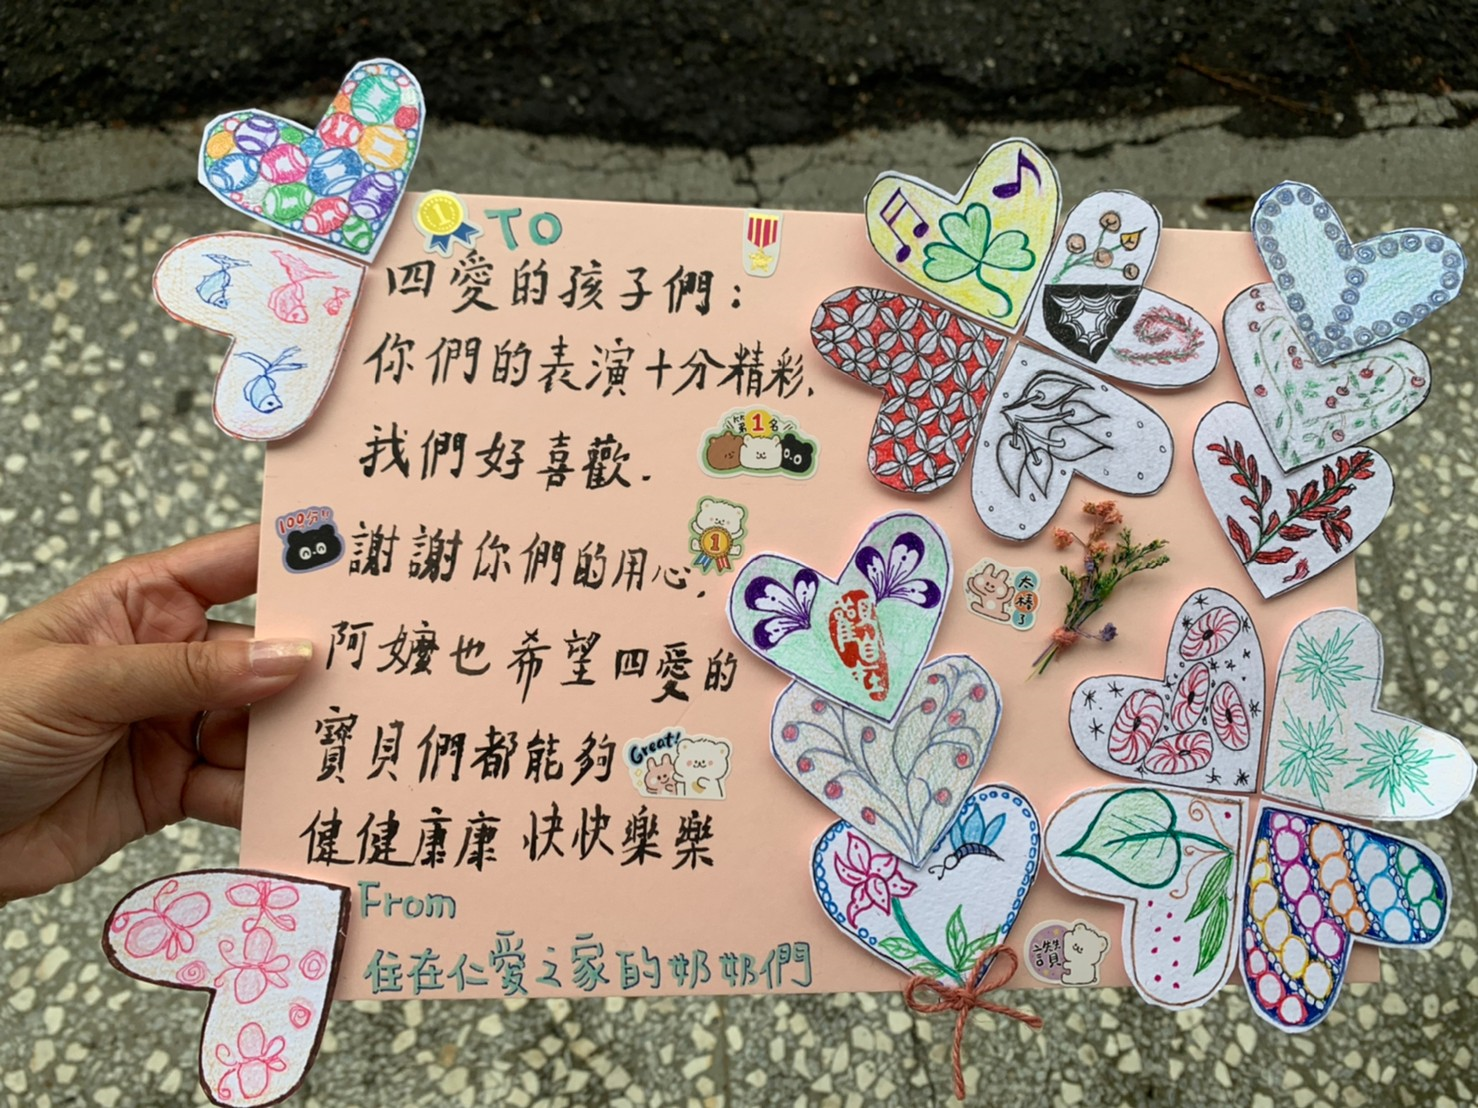 TO
四愛的孩子們:
你們的表演十分精彩.
我們好喜歡.
第1名
100分!!
謝謝你們的用心.
1
1
太棒了
阿嬤也希望四愛的
寶貝們都能夠
Great!
健健康康 快快樂樂
From
住在仁愛之家的奶奶們
讚